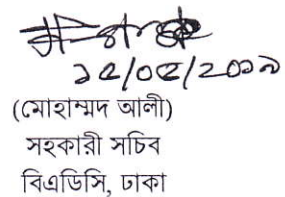 ১৫/০৫/২০১৯
(মোহাম্মদ আলী)
সহকারী সচিব
বিএডিসি, ঢাকা